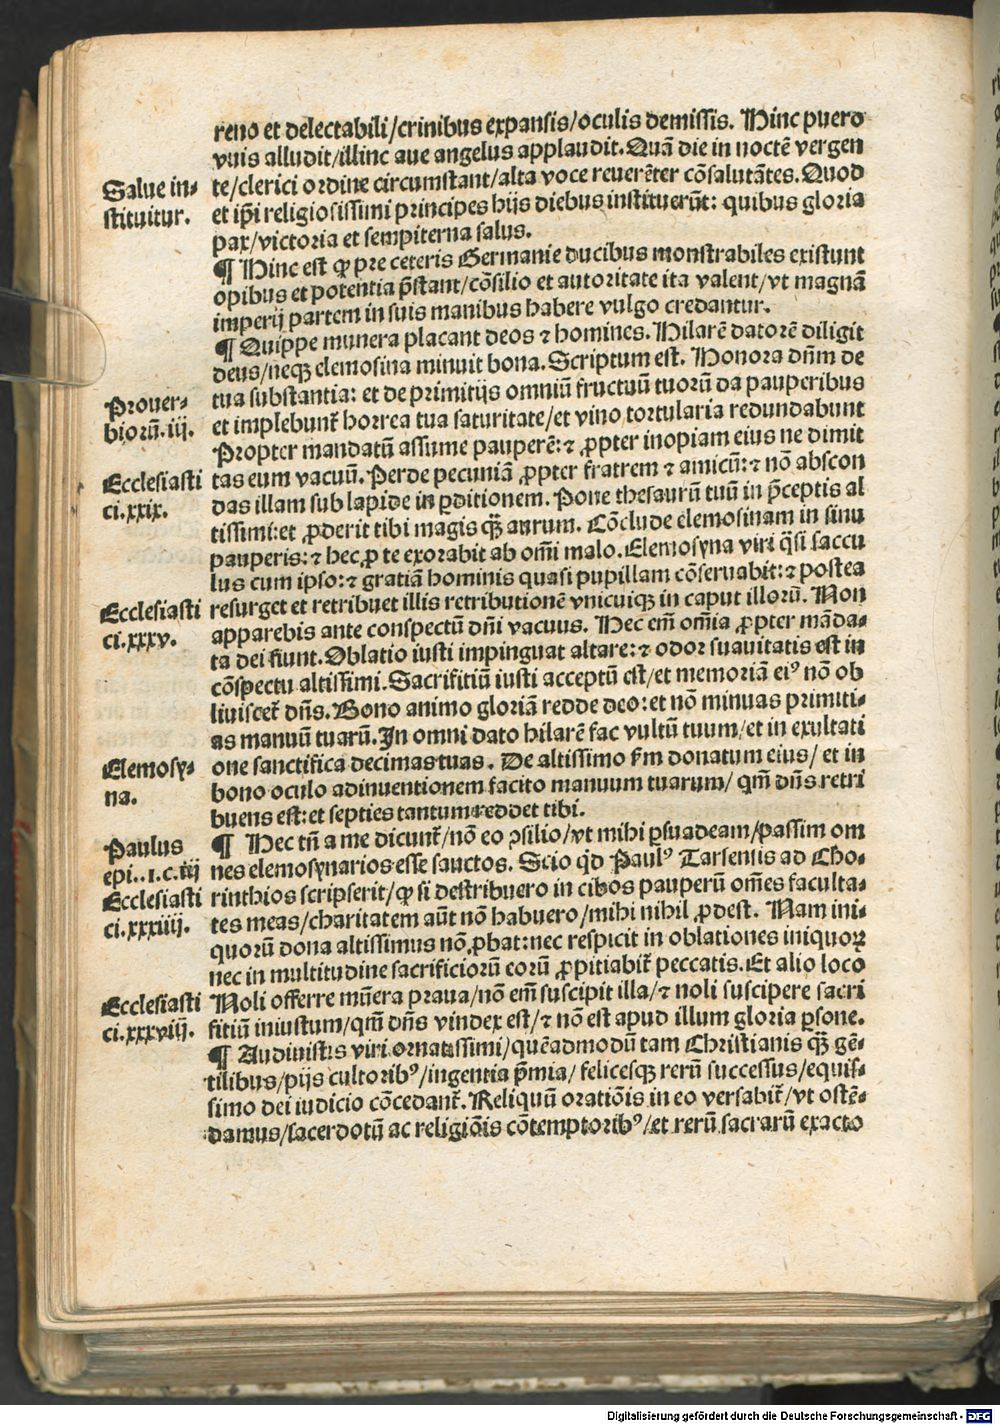 reno et delectabili/crinibus expansis/oculis demissis. Hinc puero
vuis alludit/illinc aue angelus applaudit. Quã die in noctẽ vergen
Salue in⸗
stituitur.
te/clerici ordine circumstant/alta voce reuerẽter cõsalutãtes. Quod
et ip̃i religiosissimi principes hijs diebus instituerũt: quibus gloria
pax/victoria et sempiterna salus.
¶ Hinc est ꝙ pre ceteris Germanie ducibus monstrabiles existunt
opibus et potentia p̃stant/cõsilio et autoritate ita valent/vt magnã
imperij partem in suis manibus habere vulgo credantur.
¶ Quippe munera placant deos ⁊ homines. Hilarẽ datorẽ diligit
deus/neqꝫ elemosina minuit bona. Scriptum est. Honora dñm de
Prouer⸗
biorũ.iij.
tua substantia: et de primitijs omniũ fructuũ tuorũ da pauperibus
et implebunt̃ horrea tua saturitate/et vino tortularia redundabunt
Propter mandatũ assume pauperẽ:⁊ ꝓpter inopiam eius ne dimit
Ecclesiasti
ci.xxix.
tas eum vacuũ. Perde pecuniã ꝓpter fratrem ⁊ amicũ:⁊ nõ abscon
das illam sub lapide in ꝑditionem. Pone thesaurũ tuũ in p̃ceptis al
tissimi:et ꝓderit tibi magis qꝫ̃ aurum. Cõclude elemosinam in sinu
pauperis:⁊ hec ꝓ te exorabit ab om̃i malo. Elemosyna viri q̃si saccu
lus cum ipso:⁊ gratiã hominis quasi pupillam cõseruabit:⁊ postea
Ecclesiasti
ci.xxxv.
resurget et retribuet illis retributionẽ vnicuiqꝫ in caput illorũ. Non
apparebis ante conspectũ dñi vacuus. Hec em̃ om̃ia ꝓpter mãda⸗
ta dei fiunt. Oblatio iusti impinguat altare:⁊ odor suauitatis est in
cõspectu altissimi. Sacrifitiũ iusti acceptũ est/et memoriã eiꝰ nõ ob
liuiscet̃ dñs. Bono animo gloriã redde deo:et nõ minuas primiti⸗
as manuũ tuarũ. In omni dato hilarẽ fac vultũ tuum/et in exultati
Elemosy⸗
na.
one sanctifica decimas tuas. De altissimo ẜm donatum eius/ et in
bono oculo adinuentionem facito manuum tuarum/ qm̃ dñs retri
buens est:et septies tantum reddet tibi.
Paulus
epi..1.c.iij
¶ Hec tñ a me dicunt̃/nõ eo ꝯsilio/vt mihi ꝑsuadeam/passim om
nes elemosynarios esse sanctos. Scio qd̃ Paulꝰ Tarsensis ad Cho⸗
Ecclesiasti
ci.xxxiiij.
rinthios scripserit/ꝙ si destribuero in cibos pauperũ om̃es faculta⸗
tes meas/charitatem aũt nõ habuero/mihi nihil ꝓdest. Nam ini⸗
quorũ dona altissimus nõ ꝓbat:nec respicit in oblationes iniquoꝝ
nec in multitudine sacrificiorũ eorũ ꝓpitiabit̃ peccatis. Et alio loco
Ecclesiasti
ci.xxxviij.
Noli offerre mũera praua/nõ em̃ suscipit illa/⁊ noli suscipere sacri
fitiũ iniustum/qm̃ dñs vindex est/⁊ nõ est apud illum gloria ꝑsone.
¶ Audiuistis viri ornatissimi/quẽadmodũ tam Christianis qꝫ̃ gẽ⸗
tilibus/pijs cultoribꝰ/ingentia p̃mia/ felicesqꝫ rerũ successus/equis⸗
simo dei iudicio cõcedant̃. Reliquũ oratiõis in eo versabit̃/vt ostẽ⸗
damus/sacerdotũ ac religiõis cõtemptoribꝰ/et rerũ sacrarũ exacto
Digitalisierung gefördert durch die Deutsche Forschungsgemeinschaft - DFG